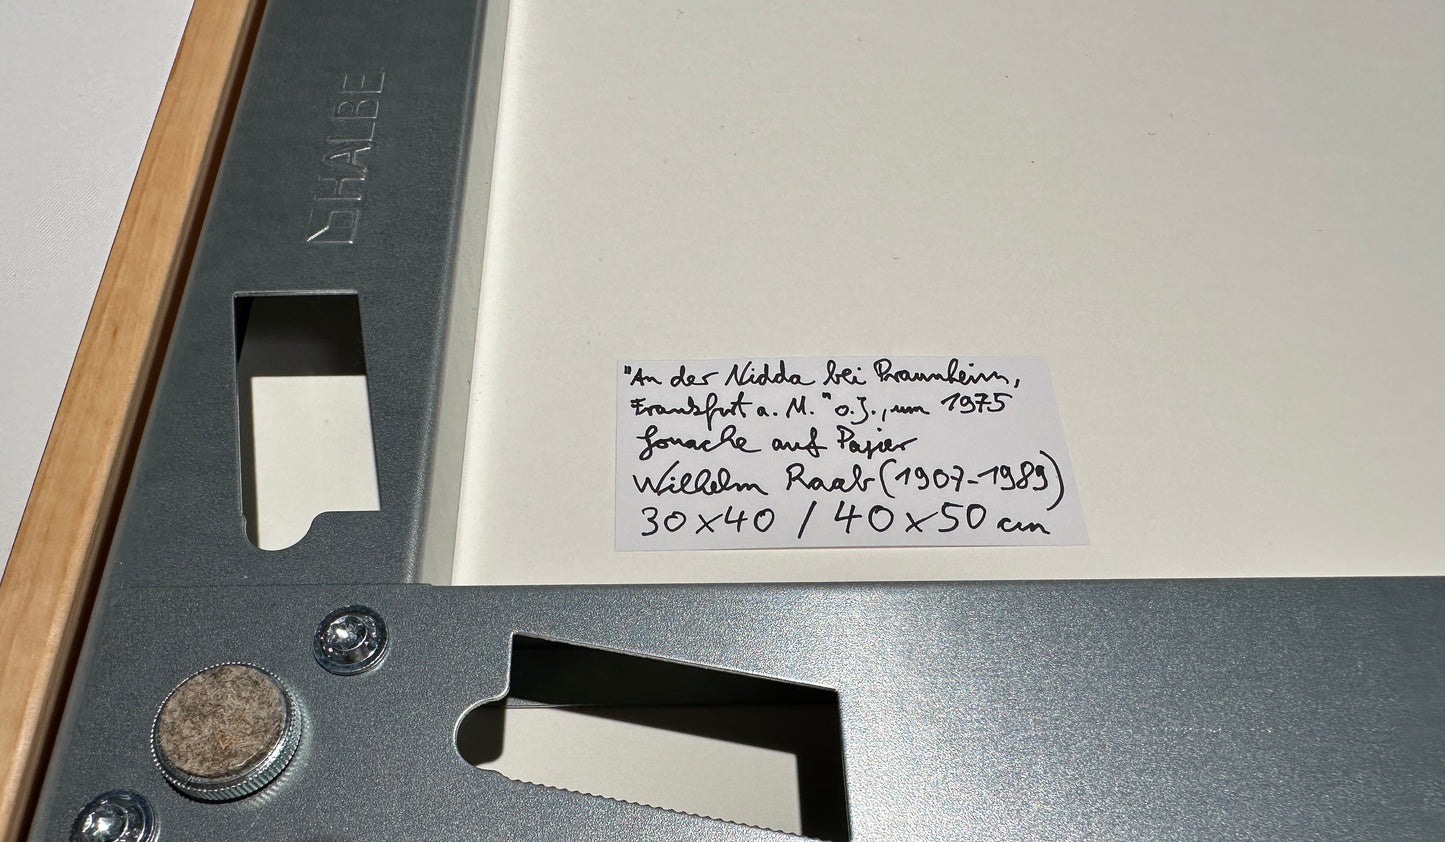 HALBE
"An der Nidda bei Praunheim,
Frankfurt a. M." o.J., um 1975
Gouache auf Papier
Wilhelm Raab (1907-1989)
30x40 / 40x50 cm